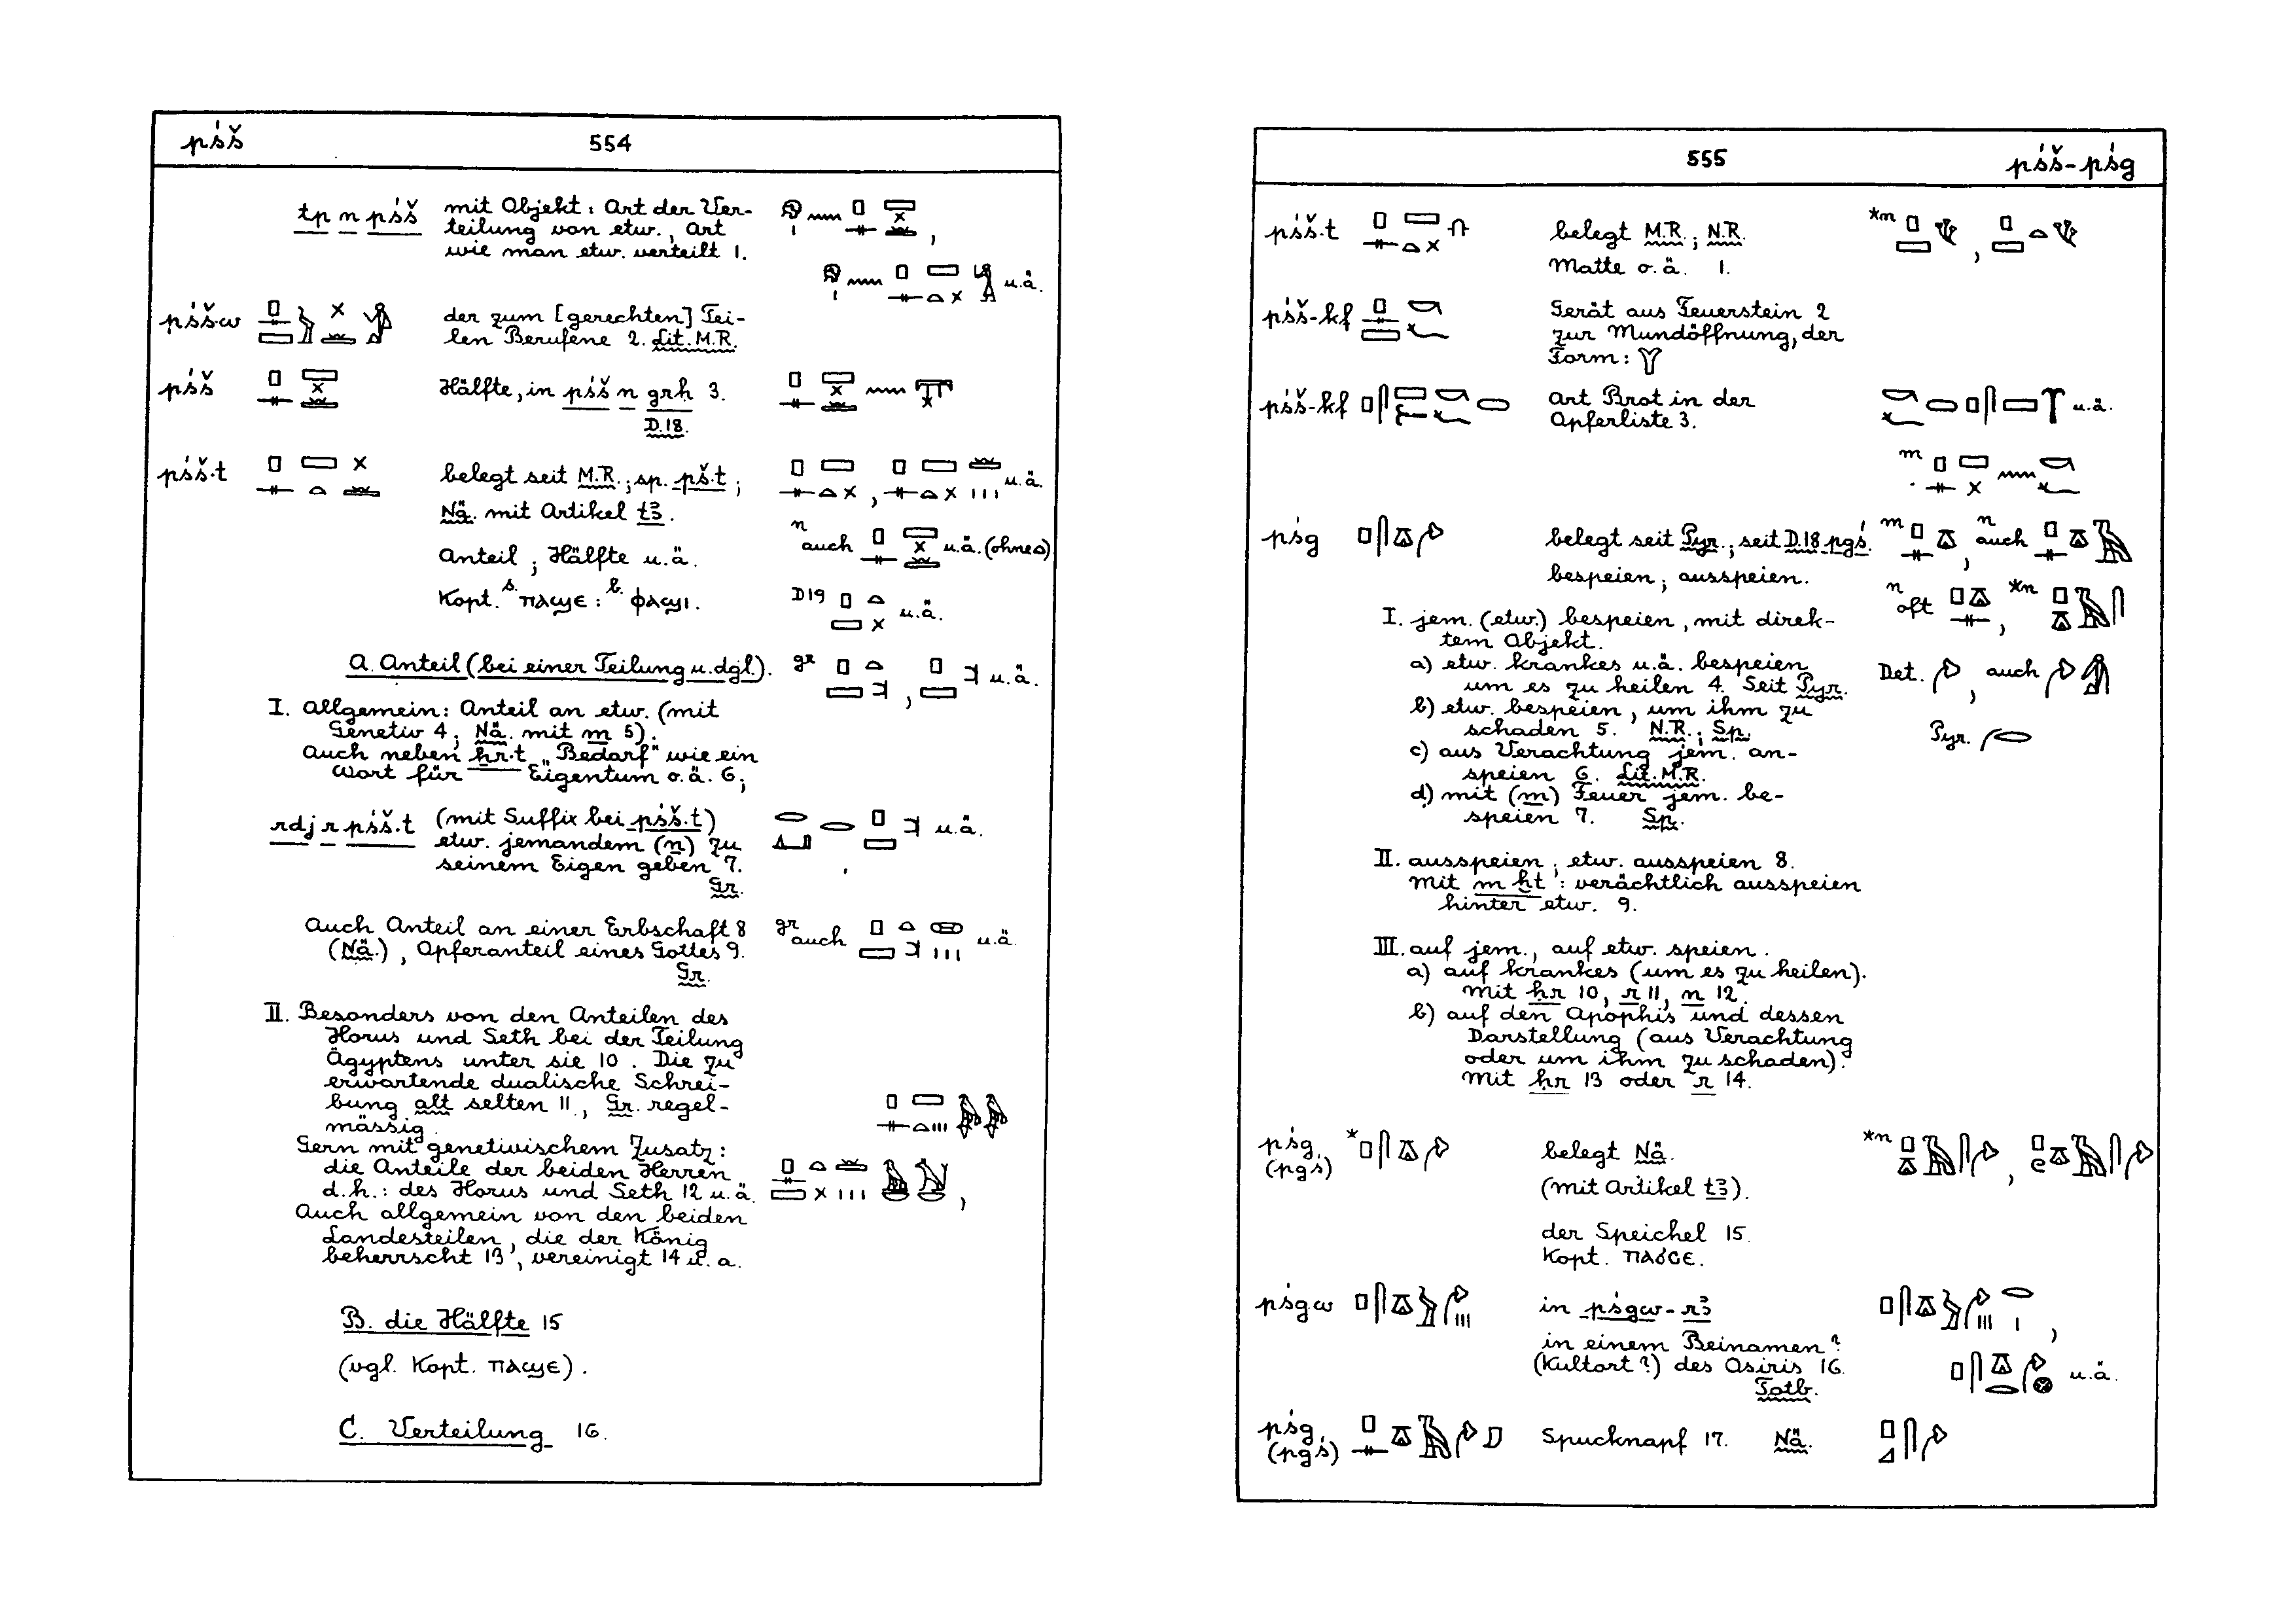 pśš 554
tp n pśš mit Objekt: Art der Ver-
teilung von etw., Art
wie man etw. verteilt 1.
u.ä.
pśš.w der zum [gerechten] Tei-
len Berufene 2. Lit. M.R.
pśš Hälfte, in pśš n grḥ 3.
D.18.
pśš.t belegt seit M.R.; sp. pš.t; u.ä.
Nä. mit Artikel tꜣ.
n auch u.ä. (ohne ś)
Anteil; Hälfte u.ä.
Kopt. s. ⲡⲁϣⲉ : b. ⲫⲁϣⲓ. D19 u.ä.
A. Anteil (bei einer Teilung u.dgl.). gr u.ä.
I. Allgemein: Anteil an etw. (mit
Genetiv 4; Nä. mit m 5).
Auch neben ẖr.t „Bedarf" wie ein
Wort für Eigentum o.ä. 6;
rdj r pśš.t (mit Suffix bei pśš.t) u.ä.
etw. jemandem (n) zu
seinem Eigen geben 7.
Gr.
Auch Anteil an einer Erbschaft 8 gr auch u.ä.
(Nä.), Opferanteil eines Gottes 9.
Gr.
II. Besonders von den Anteilen des
Horus und Seth bei der Teilung
Ägyptens unter sie 10. Die zu
erwartende dualische Schrei-
bung alt selten 11, Gr. regel-
mässig.
Gern mit genetivischem Zusatz:
die Anteile der beiden Herren
d.h.: des Horus und Seth 12 u.ä.
Auch allgemein von den beiden
Landesteilen, die der König
beherrscht 13, vereinigt 14 u.a.
B. die Hälfte 15
(vgl. Kopt. ⲡⲁϣⲉ).
C. Verteilung 16.
555 pśš-pśg
pśš.t belegt M.R.; N.R. *m
Matte o.ä. 1.
pśš-kf Gerät aus Feuerstein 2
zur Mundöffnung, der
Form:
pśš-kf Art Brot in der u.ä.
Opferliste 3.
m
pśg belegt seit Pyr.; seit D.18 pgś. m n auch
bespeien; ausspeien.
n oft *n
I. jem. (etw.) bespeien, mit direk-
tem Objekt.
a) etw. krankes u.ä. bespeien Det. auch
um es zu heilen 4. Seit Pyr.
b) etw. bespeien, um ihm zu
schaden 5. N.R.; Sp. Pyr.
c) aus Verachtung jem. an-
speien 6. Lit. M.R.
d) mit (m) Feuer jem. be-
speien 7. Sp.
II. ausspeien; etw. ausspeien 8.
Mit m ḫt : verächtlich ausspeien
hinter etw. 9.
III. auf jem., auf etw. speien.
a) auf krankes (um es zu heilen).
Mit ḥr 10, r 11, n 12.
b) auf den Apophis und dessen
Darstellung (aus Verachtung
oder um ihm zu schaden).
Mit ḥr 13 oder r 14.
pśg * belegt Nä. *n
(pgś) (mit Artikel tꜣ).
der Speichel 15.
Kopt. ⲡⲁϭⲥⲉ.
pśgw in pśgw-rꜣ
in einem Beinamen?
(Kultort?) des Osiris 16. u.ä.
Totb.
pśg Spucknapf 17. Nä.
(pgś)